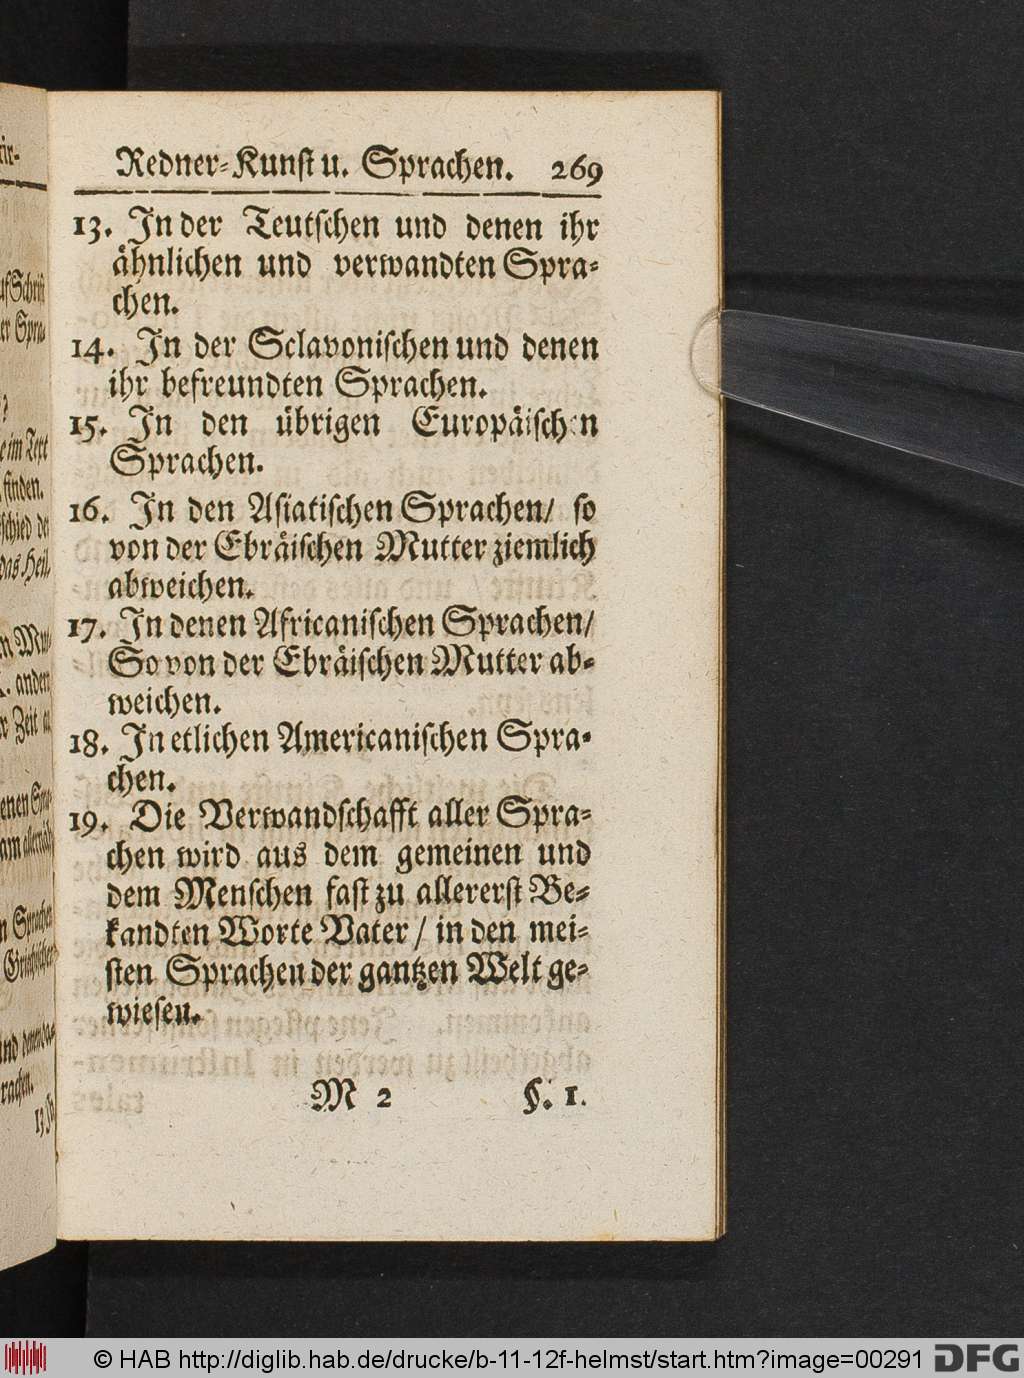 Redner-Kunst u. Sprachen. 269
13. In der Teutschen und denen ihr
ähnlichen und verwandten Spra-
chen.
14. In der Sclavonischen und denen
ihr befreundten Sprachen.
15. In den übrigen Europäischen
Sprachen.
16. In den Asiatischen Sprachen/ so
von der Ebräischen Mutter ziemlich
abweichen.
17. In denen Africanischen Sprachen/
So von der Ebräischen Mutter ab-
weichen.
18. In etlichen Americanischen Spra-
chen.
19. Die Verwandschafft aller Spra-
chen wird aus dem gemeinen und
dem Menschen fast zu allererst Be-
kandten Worte Vater / in den mei-
sten Sprachen der gantzen Welt ge-
wiesen.
M 2 §. 1.
© HAB http://diglib.hab.de/drucke/b-11-12f-helmst/start.htm?image=00291 DFG